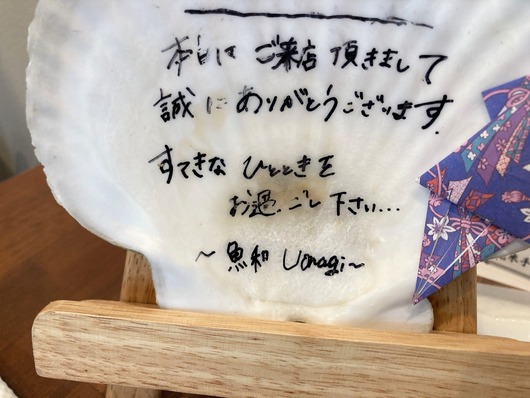 本日は ご来店 頂きまして
誠に ありがとうございます.
すてきな ひとときを
お過ごし 下さい...
〜 魚和 Uonagi〜